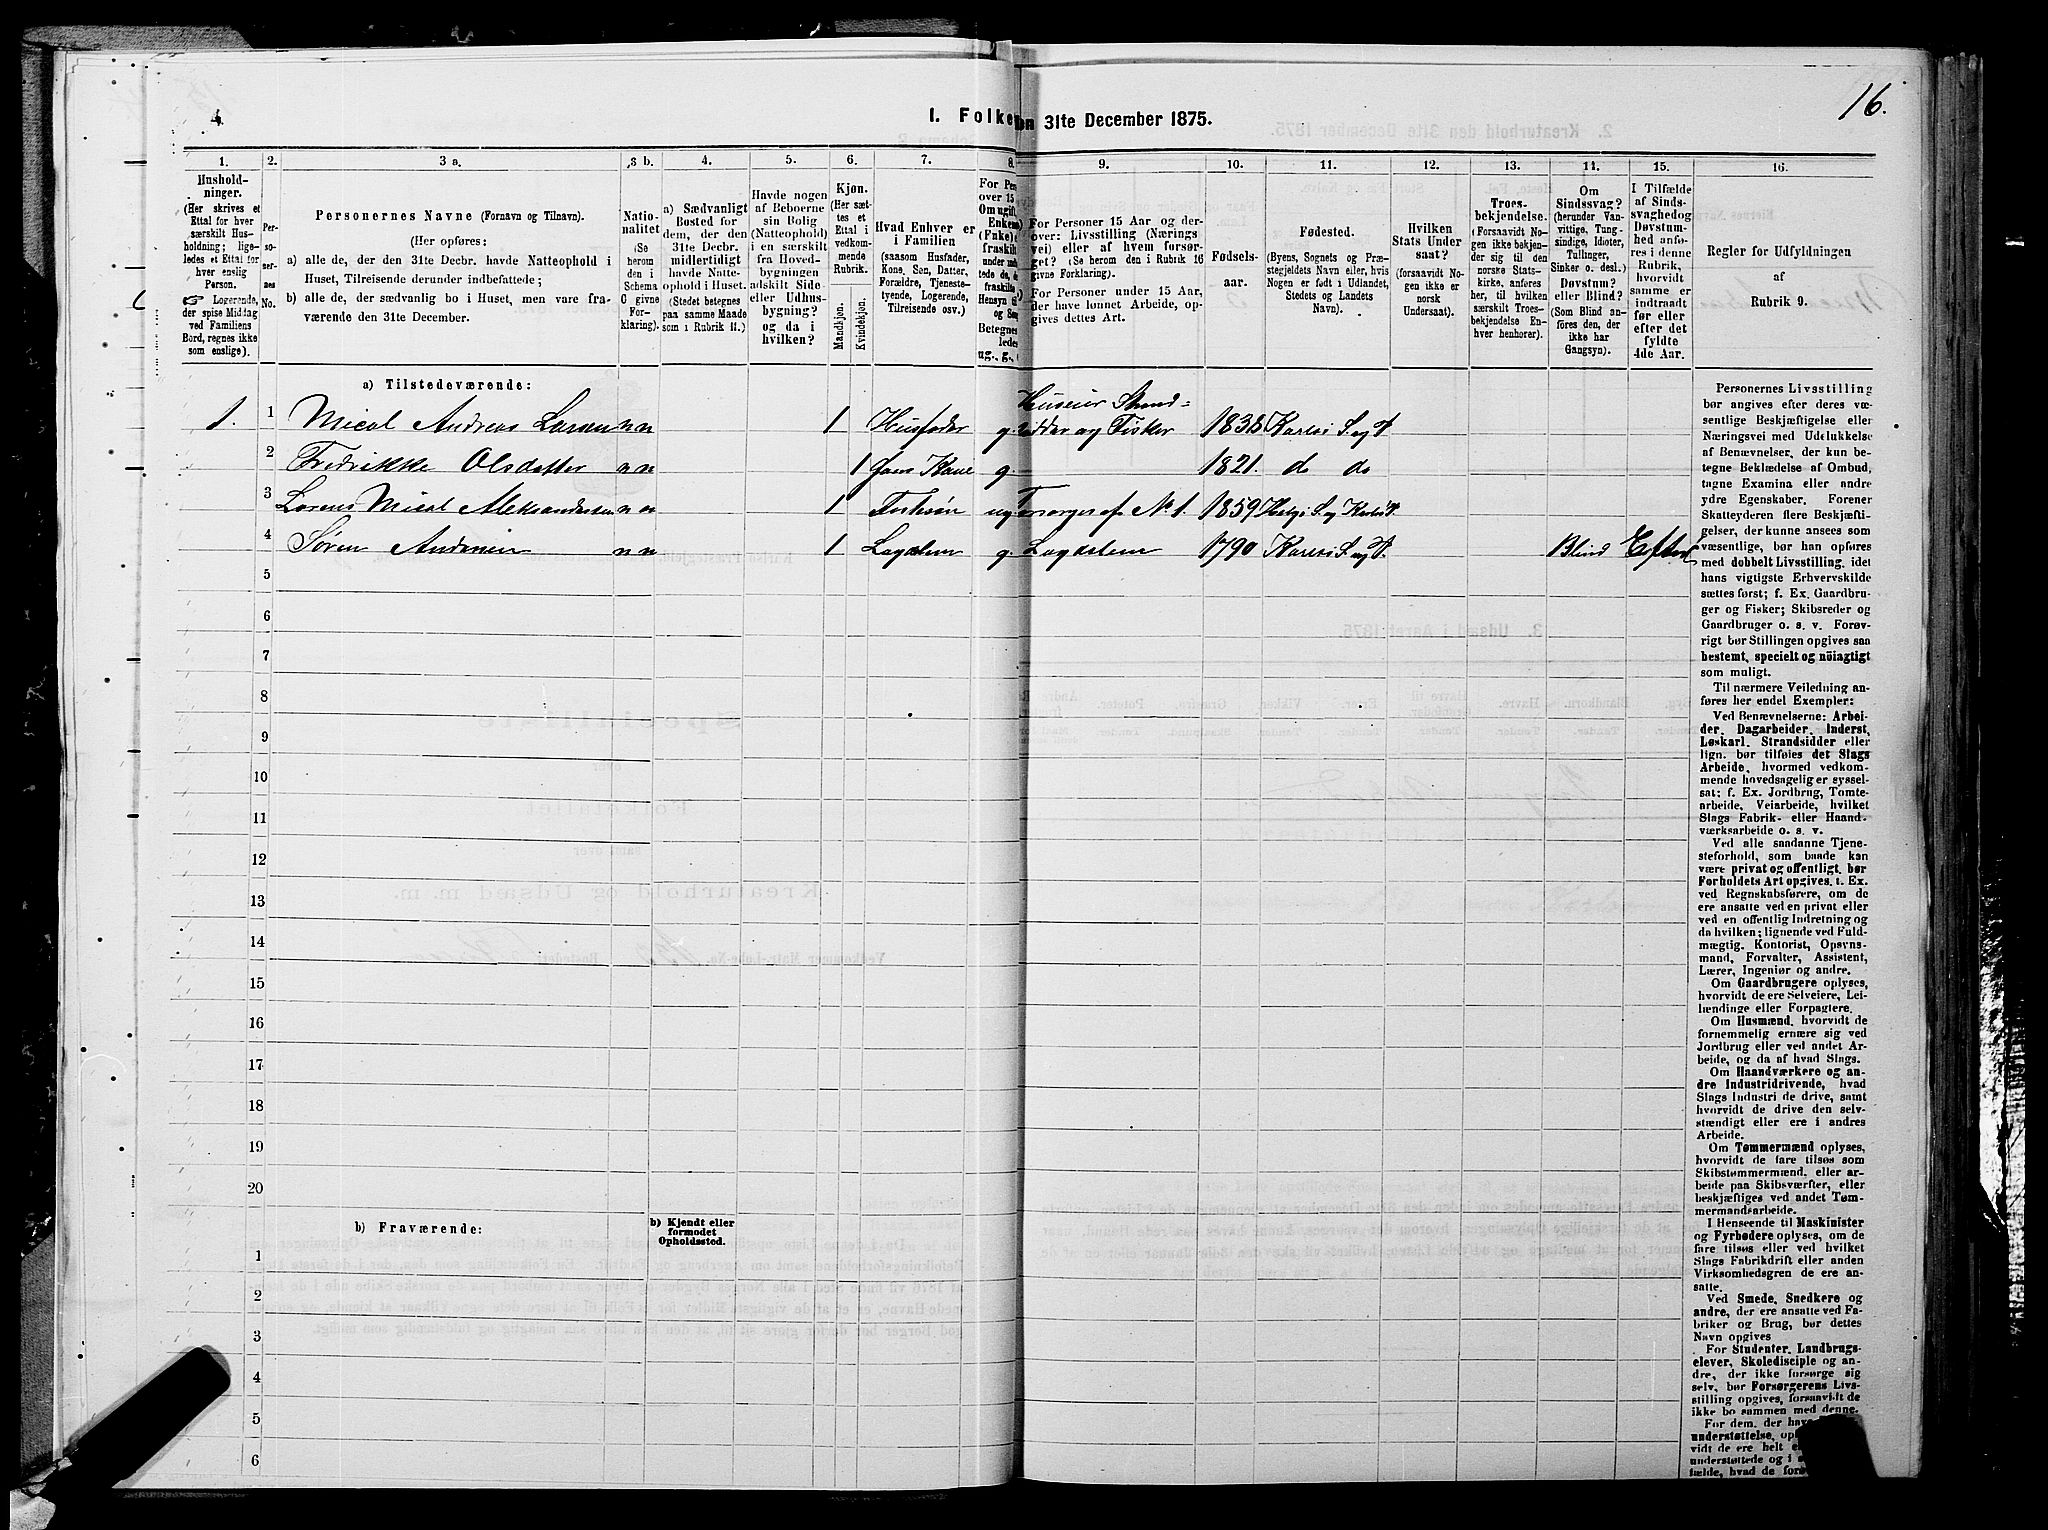 4
16.
I. Folke
den 31te December 1875.
1.
2.
3 a.
3 b.
4.
5.
6.
7.
8.
9.
10.
11.
12.
13.
14.
15.
16.
Hushold-
ninger.
(Her skrives et
Ettal for hver
særskilt Hus-
holdning; lige-
ledes et Ettal for
hver enslig
Person.
☞ Logerende,
der spise Middag
ved Familiens
Bord, regnes ikke
som enslige).
Per-
so-
ner-
nes
No.
Personernes Navne (Fornavn og Tilnavn).
(Her opføres:
a) alle de, der den 31te Decbr. havde Natteophold i
Huset, Tilreisende derunder indbefattede;
b) alle de, der sædvanlig bo i Huset, men vare fra-
værende den 31te December.
Natio-
nalitet
(Se
herom
den i
Schema
C givne
For-
klaring).
a) Sædvanligt
Bosted for
dem, der den
31te Decbr.
midlertidigt
havde Natte-
ophold i Huset.
(Stedet betegnes
paa samme Maade
som i Rubrik 11.)
Havde nogen
af Beboerne
sin Bolig
(Natteophold)
i en særskilt
fra Hoved-
bygningen
adskilt Side-
eller Udhus-
bygning?
og da i
hvilken?
Kjøn.
(Her sæt-
tes et
Ettal i
vedkom-
mende
Rubrik.
Mandkjøn.
Kvindekjøn.
Hvad Enhver er
i Familien
(saasom Husfader,
Kone, Søn, Datter,
Forældre, Tjeneste-
tyende, Logerende,
Tilreisende osv.)
For Pers
over 15
Om ugift,
Enkem
(Enke)
fraskilt
under
tede de, de
fraskilte
Hensyn til
og Sen
Betegnes
ledes
ug., g.,
For Personer 15 Aar og der-
over: Livsstilling (Nærings
vei) eller af hvem forsør-
get? (Se herom den i Rubrik 16
givne Forklaring).
For Personer under 15 Aar,
der have lønnet Arbeide, op-
gives dettes Art.
Fødsels-
aar.
Fødested.
(Byens, Sognets og Præ-
stegjeldets Navn eller, hvis
Nogen er født i Udlandet,
Stedets og Landets
Navn).
Hvilken
Stats Under
saat?
(forsaavidt No-
gen ikke er
norsk
Undersaat).
Troes-
bekjendelse.
(Forsaavidt No-
gen ikke bekjen-
der sig til den
norske Stats-
kirke, anføres
her, til hvilken
særskilt Troes-
bekjendelse En-
hver henhorer).
Om
Sindssvag?
(herunder Van-
vittige, Tung-
sindige, Idioter,
Tullinger,
Sinker o. desl.)
Døvstum?
eller Blind?
(Som Blind an-
føres den, der
ikke har
Gangsyn).
I Tilfælde
af Sinds-
svaghedog
Døvstum-
hed anfø-
res i denne
Rubrik,
hvorvidt
samme er
indtraadt
før eller
efter det
fyldte
4de Aar.
Regler for Udfyldningen
af
Rubrik 9.
a) Tilstedeværende:
Huseier Strand=
1. 1 Mical Andreas Larsen n n 1 Husfader g. sidder og Fisker 1838 Karlsø S. og P.
2 Fredrikke Olsdatter n n 1 hans Kone g. 1821. do do
3 Lorens Mical Aleksandersen n n 1 Fostersøn ug. Forsørges af No 1. 1859 Helgø S. og Karlsø P.
4 Søren Andersen n n 1 Lægdslem g. Lægdslem 1790 Karlsø S. og P. Blind Efter
5
6
7
8
9
10
11
12
13
14
15
16
17
18
19
20
b) Fraværende:
b) Kjendt eller
formodet
Opholdssted.
1
2
3
4
5
6
Personernes Livsstilling
bør angives efter deres væ-
sentlige Beskjæftigelse eller
Næringsvei med Udelukkelse
af Benævnelser, der kun be-
tegne Beklædelse af Ombud,
tagne Examina eller andre
ydre Egenskaber. Forener
Skatteyderen flere Beskjæfti-
gelser, der kunne ansees som
væsentlige, bør han opføres
med dobbelt Livsstilling, idet
hans vigtigste Erhvervskilde
sættes først; f. Ex. Gaardbru-
ger og Fisker; Skibsreder og
Gaardbruger o. s. v. Forøv-
rigt bør Stillingen opgives saa
bestemt, specielt og nöiagtigt
som muligt.
Til nærmere Veiledning an-
føres her endel Exempler:
Ved Benævnelserne: Arbei-
der, Dagarbeider, Inderst,
Løskarl, Strandsidder eller
lign. bør tilføies det Slags
Arbeide, hvormed vedkom-
mende hovedsagelig er syssel-
sat; f. Ex. Jordbrug, Tomte-
arbeide, Veiarbeide, hvilket
Slags Fabrik- eller Haand-
værksarbeide o. s. v.
Ved alle saadanne Tjene-
steforhold, som baade kan
være privat og offentligt, bør
Forholdets Art opgives, t. Ex.
ved Regnskabsførere, om de
ere ansatte ved en privat eller
ved en offentlig Indretning og
da hvilken; lignende ved Fuld-
mægtig, Kontorist, Opsyns-
mand, Forvalter, Assistent,
Lærer, Ingeniør og andre.
Om Gaardbrugere oplyses,
hvorvidt de ere Selveiere, Lei-
lændinge eller Forpagtere.
Om Husmænd, hvorvidt de
fornemmelig ernære sig ved
Jordbrug eller ved andet Ar-
beide, og da af hvad Slags.
Om Haandværkere og an-
dre Industridrivende, hvad
Slags Industri de drive, samt
hvorvidt de drive den selv-
stændigt eller ere i andres
Arbeide.
Om Tømmermænd oplyses,
hvorvidt de fare tilsøs som
Skibstømmermænd, eller ar-
beide paa Skibsværfter, eller
beskjæftiges ved andet Tøm-
mermandsarbeide.
I Henseende til Maskinister
og Fyrbødere oplyses, om de
fare tilsøs eller ved hvilket
Slags Fabrikdrift eller anden
Virksomhedsgren de ere an-
satte.
Ved Smede, Snedkere og
andre, der ere ansatte ved Fa-
briker og Brug, bør dettes
Navn opgives
For Studenter, Landbrugs-
elever, Skoledisciple og an-
dre, der ikke forsørge sig
selv, bør Forsørgerens Livs-
stilling opgives, forsaavidt de
ikke bo sammen med denne.
For dem, der have
understøttelse, op
vidt de ere helt e
understøttede og i
fælde, hvad de for